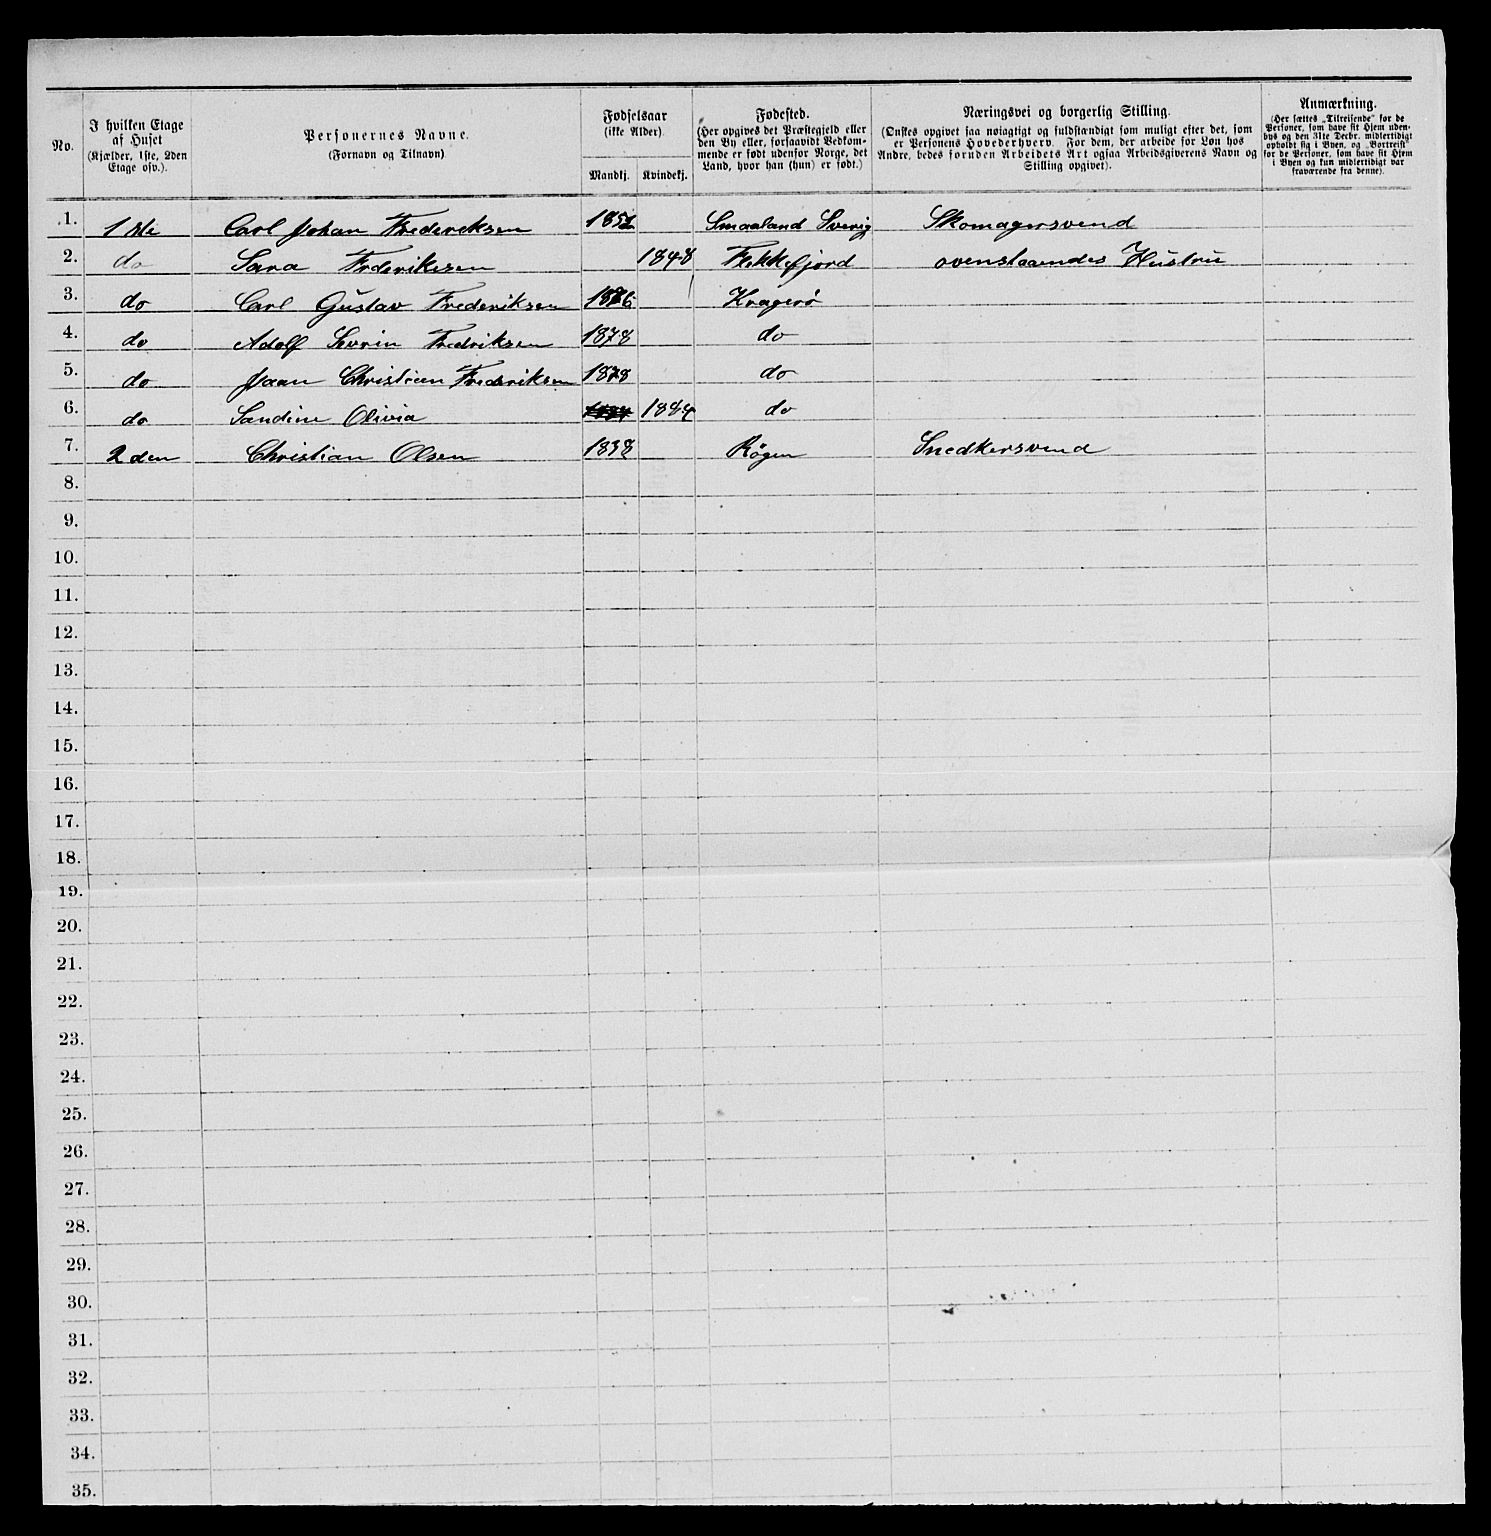 No.
I hvilken Etage af Huset (Kjælder, 1ste, 2den Etage osv.).
Personernes Navne. (Fornavn og Tilnavn)
Fødselsaar (ikke Alder)
Mandkj. Kvindekj.
Fødested. (Her opgives det Præstegjeld eller den By eller, forsaavidt Vedkommende er født udenfor Norge, det Land, hvor han (hun) er født.)
Næringsvei og borgerlig Stilling. (Ønskes opgivet saa nøiagtigt og fuldstændigt som muligt efter det, som er Personens Hovederhverv. For dem, der arbeide for Løn hos Andre, bedes foruden Arbeidets Art ogsaa Arbeidsgiverens Navn og Stilling opgivet).
Anmærkning. (Her sættes „Tilreisende" for de Personer, som have sit Hjem udenbys og den 31te Decbr. midlertidigt opholdt sig i Byen, og „Bortreist" for de Personer, som have sit Hjem i Byen og kun midlertidigt var fraværende fra denne).
1. 1ste Carl Johan Frederiksen 1852 Smaaland Sverig Skomagersvend
2. do Sara Frderiksen 1848 Flekkefjord ovenstaaendes Hustrue
3. do Carl Gustav Frederiksen 1876 Kragerø
4. do Adolf Sevrin Fredriksen 1878 do
5. do Christian Frederiksen 1878 do
6. do Sandine Olivia 1884 do
7. 2den Christian Olsen 1838 Røgen Snedkersvend
8.
9.
10.
11.
12.
13.
14.
15.
16.
17.
18.
19.
20.
21.
22.
23.
24.
25.
26.
27.
28.
29.
30.
31.
32.
33.
34.
35.